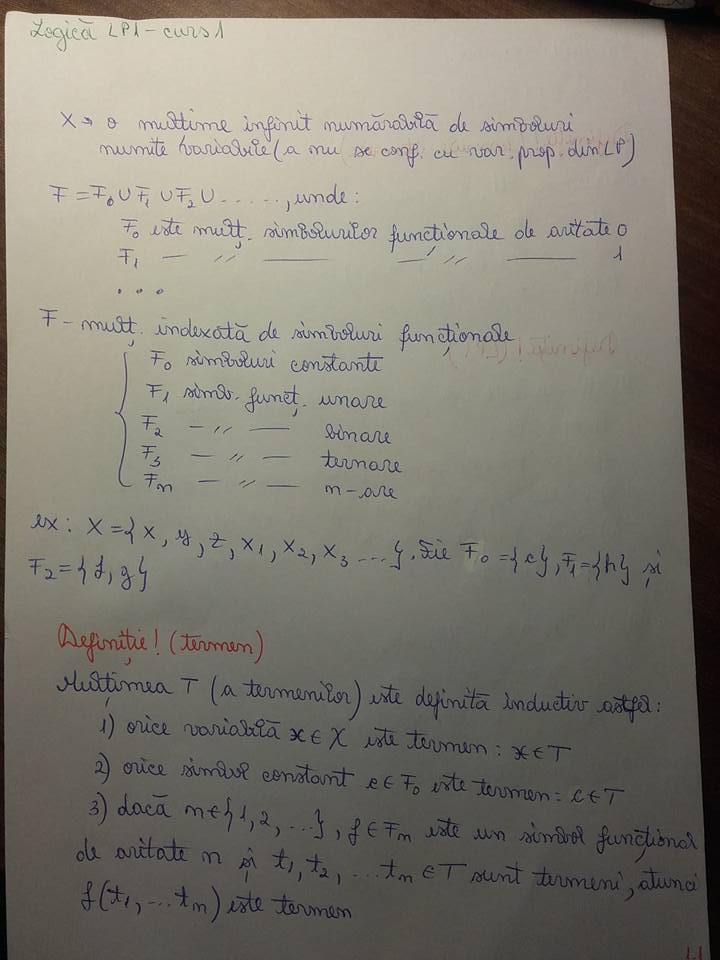 Logică LP1 - curs 1
X → o mulțime infinit numărabilă de simboluri
numite variabile (a nu se conf. cu var. prop. din LP)
F = F₀ ∪ F₁ ∪ F₂ ∪ ......, unde:
F₀ este mulț. simbolurilor funcționale de aritate 0
F₁ — ,, — — ,, — 1
...
F - mulț. indexată de simboluri funcționale
F₀ simboluri constante
F₁ simb. funcț. unare
F₂ — ,, — binare
F₃ — ,, — ternare
Fₙ — ,, — n-are
ex: X = {x, y, z, x₁, x₂, x₃ ...}. Fie F₀ = {c}, F₁ = {h} și
F₂ = {f, g}
Definiție! (termen)
Mulțimea T (a termenilor) este definită inductiv astfel:
1) orice variabilă x ∈ X este termen: x ∈ T
2) orice simbol constant c ∈ F₀ este termen: c ∈ T
3) dacă n ∈ {1, 2, ...}, f ∈ Fₙ este un simbol funcțional
de aritate n și t₁, t₂, ... tₙ ∈ T sunt termeni, atunci
f(t₁, ... tₙ) este termen